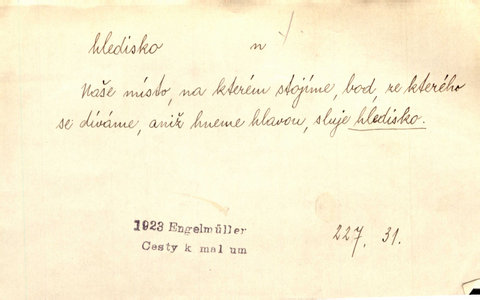 hledisko n
Naše místo, na kterém stojíme, bod, ze kterého
se díváme, aniž hneme hlavou, sluje hledisko.
1923 Engelmüller
Cesty k mal um
227, 31.